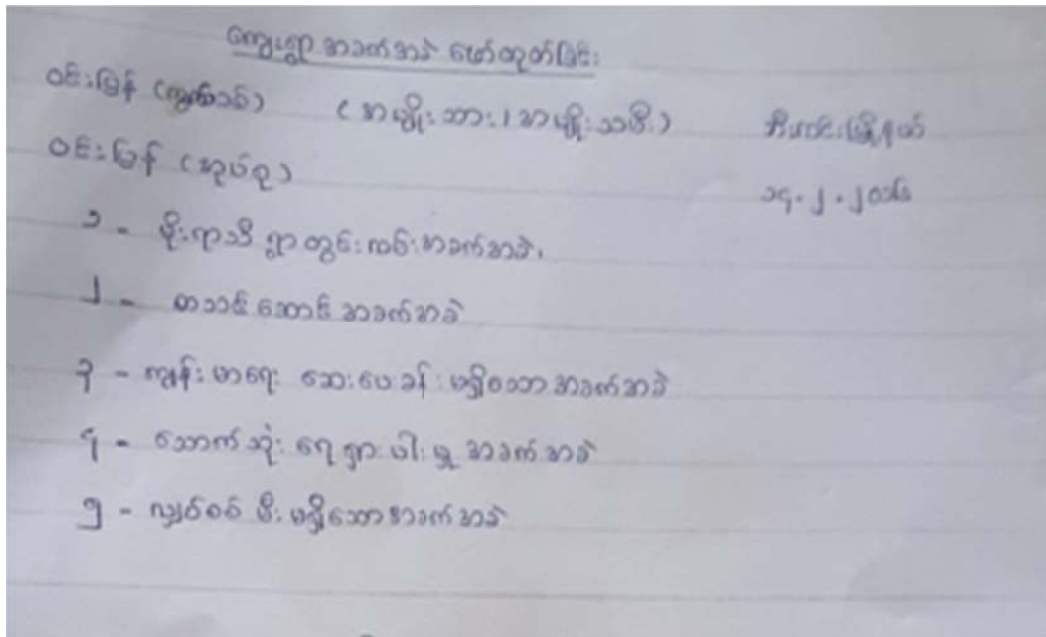 ကျေးရွာ အခက်အခဲ ဖော်ထုတ်ခြင်း
ဝင်းမြန် (ကွက်သစ်) ( အမျိုးသား၊ အမျိုးသမီး) မြို့နယ်
ဝင်းမြန် (အုပ်စု) ၁၄.၂.၂၀
၁ - မိုးရာသီ ရွာတွင်းလမ်းအခက်အခဲ၊
၂ - စာသင်ဆောင် အခက်အခဲ
၃ - ကျန်းမာရေး ဆေးပေးခန်း မရှိသော အခက်အခဲ
၄ - သောက်သုံး ရေ ရှားပါးမှု အခက်အခဲ
၅ - လျှပ်စစ် မီး မရှိသော အခက်အခဲ